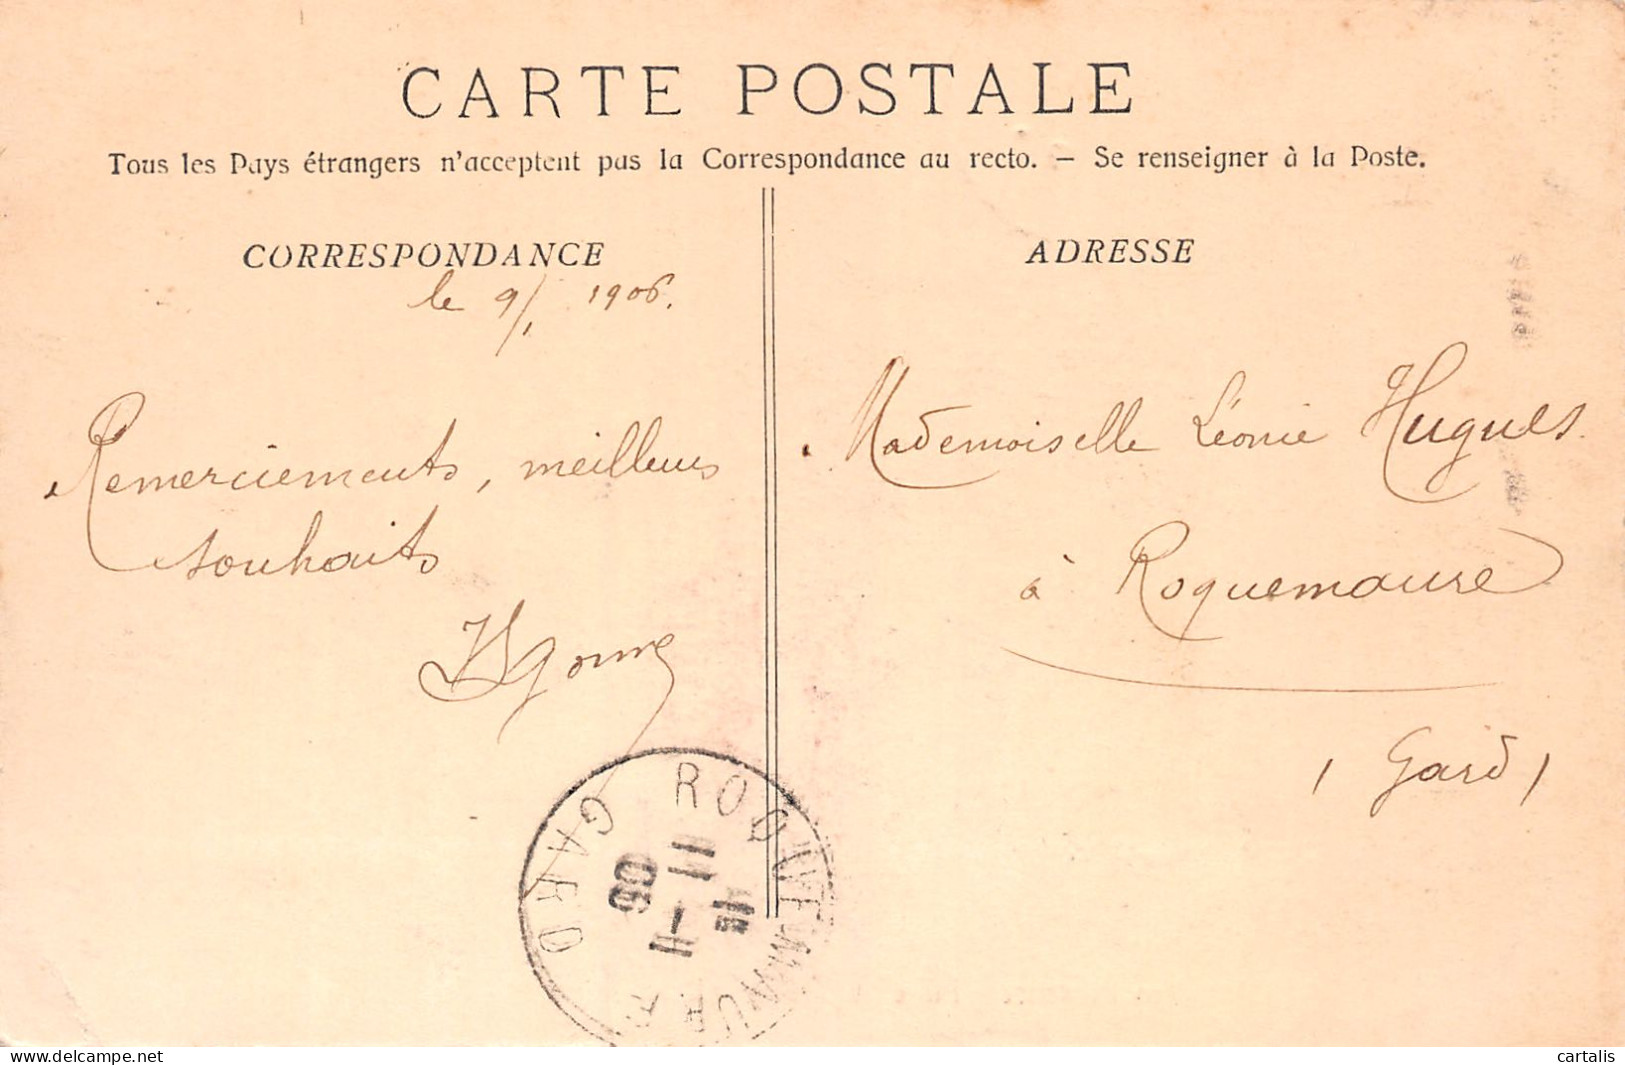 CARTE POSTALE
Tous les Pays étrangers n'acceptent pas la Correspondance au recto. — Se renseigner à la Poste.
CORRESPONDANCE
le 9/1 1906.
Remerciements, meilleurs
souhaits
ADRESSE
Mademoiselle Léonie Hugues
à Roquemaure
(Gard)
ROQUEMAURE
GARD
11 -1
06
www.delcampe.net
cartalis